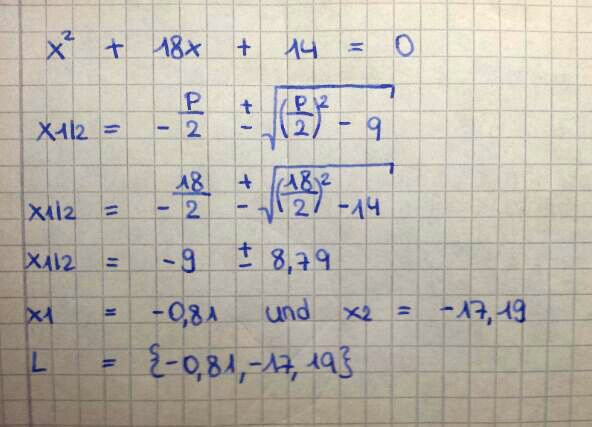 x² + 18x + 14 = 0
x1/2 = - p/2 ± √((p/2)² - q)
x1/2 = - 18/2 ± √((18/2)² - 14)
x1/2 = -9 ± 8,79
x1 = -0,81 und x2 = -17,19
L = {-0,81, -17,19}